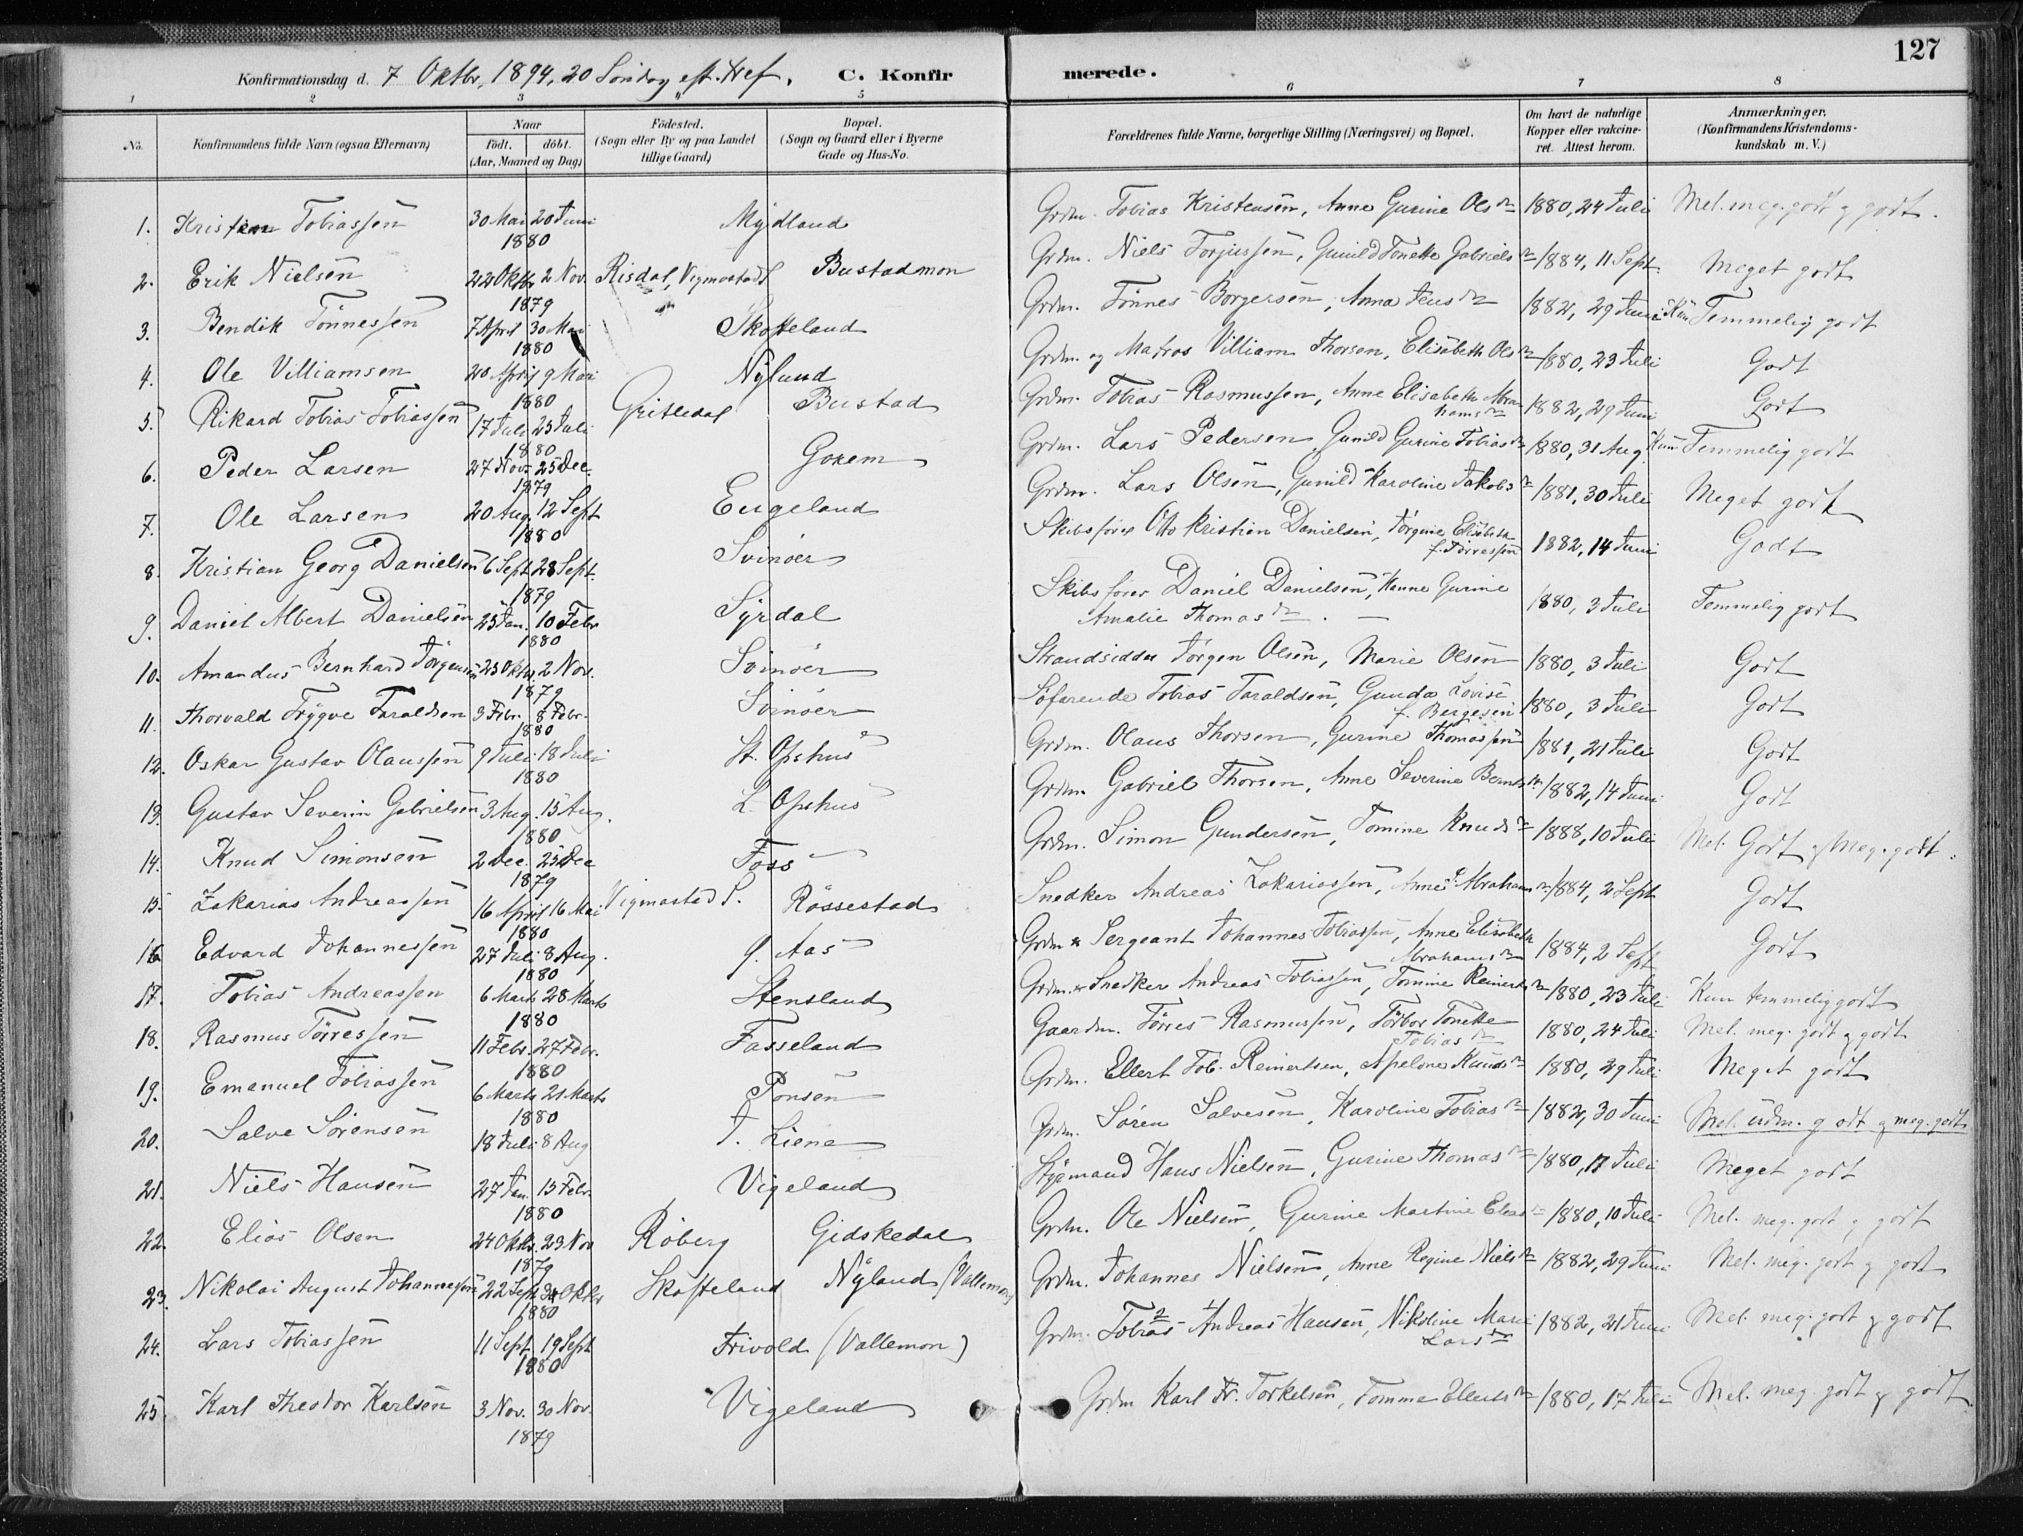 127
Konfirmationsdag d. 7 Oktbr. 1894, 20 Söndag eft. Tref. C. Konfirmerede.
1 2 3 5 6 7 8
No. Konfirmandens fulde Navn (ogsaa Efternavn) Naar födt. döbt. (Aar, Maaned og Dag) Födested. (Sogn eller By og paa Landet tillige Gaard) Bopæl. (Sogn og Gaard eller i Byerne Gade og Hus-No. Forældrenes fulde Navne, borgerlige Stilling (Næringsvei) og Bopæl. Om havt de naturlige Kopper eller vakcineret. Attest herom. Anmærkninger. (Konfirmandens Kristendomskundskab m. V.)
1. Kristian Tobiassen 30 Mai 20 Juni 1880 Mydland Grdm. Tobias Kristensen, Anne Gurine Olsdr 1880, 24 Juli Mel. meg. godt g godt.
2. Erik Nielsen 22 Oktbr 2 Nov. 1879 Risdal, Vigmostad S Bustadmon Grdm. Niels Torjussen, Gunild Tonette Gabrielsdr 1884, 11 Sept. Meget godt
3. Bendik Tönnessen 7 April 30 Mai 1880 Skofteland Grdm. Tönnes Borgersen, Anna Jensdr 1882, 29 Juni Kun Temmelig godt
4. Ole Villiamsen 20 April 9 Mai 1880 Nyland Grdm. og Matros Villiam Thorsen, Elisabeth Olsdr 1880, 23 Juli Godt
5. Rikard Tobias Tobiassen 17 Juli 25 Juli 1880 Gritledal Bustad Grdm. Tobias Rasmussen, Anne Elisabeth Abrahamsdr 1882, 29 Juni Godt
6. Peder Larsen 27 Nov. 25 Dec. 1879 Goxem Grdm. Lars Pedersen, Gunild Gurine Tobiasdr 1880, 31 Aug. Kun Temmelig godt
7. Ole Larsen 20 Aug. 12 Sept 1880 Eugeland Grdm. Lars Olsen, Gunild Karoline Jakobsdr 1881, 30 Juli Meget godt
8. Kristian Georg Danielsen 6 Sept 28 Sept. 1879 Svinöer Skibsfører Otto Kristian Danielsen, Jörgine Elisabeth f. Törressen 1882, 14 Juni Godt
9. Daniel Albert Danielsen 25 Jan. 10 Febr 1880 Syrdal Skibsfører Daniel Danielsen, Hanne Gurine Amalie Thomasdr 1880, 3 Juli Temmelig godt
10. Amandus Bernhard Jörgensen 25 Oktbr. 2 Nov. 1879 Svinöer Strandsidder Jörgen Olsen, Marie Olsen 1880, 3 Juli Godt
11. Thorvald Trygve Taraldsen 3 Febr. 8 Febr. 1880 Svinöer Söfarende Tobias Taraldsen, Gunda Lovise f. Bergesen 1880, 3 Juli Godt
12. Oskar Gustav Olaussen 9 Juli 18 Juli 1880 St. Ofshus Grdm. Olaus Thorsen, Gurine Thomassen 1881, 21 Juli Godt
13. Gustav Severin Gabrielsen 3 Aug. 15 Aug. 1880 L. Ofshus Grdm. Gabriel Thorsen, Anne Severine Berntsdr 1882, 14 Juni Godt
14. Knud Simonsen 2 Dec. 25 Dec 1879 Foss Grdm. Simon Gundersen, Tomine Knudsdr 1888, 10 Juli Mel. Godt g Meg. godt.
15. Zakarias Andreassen 16 April 16 Mai 1880 Vigmostad S. Rössestad Snedker Andreas Zakariassen, Anne Abrahamsdr 1884, 2 Sept Godt
16 Edvard Johannessen 27 Juli 8 Aug. 1880 Aas Grdm & Sergeant Johannes Tobiassen, Anne Elisabeth Abrahamsdr 1884, 2 Sept Godt
17. Tobias Andreassen 6 Marts 28 Marts 1880 Stensland Grdm. & Snedker Andreas Tobiassen, Tomine Reinertsdr 1880, 23 Juli Kun temmelig godt
18. Rasmus Törressen 11 Febr. 27 Febr. 1880 Fasseland Gaardm. Törres Rasmussen, Torbor Tonette Tobiasdr 1880, 24 Juli Mel. meg. godt g godt
19. Emanuel Tobiassen 6 Marts 21 Marts 1880 Ponsen Grdm. Ellert Tob. Reinertsen, Apelone Knudsdr 1880, 29 Juli Meget godt
20. Salve Sörensen 18 Juli 8 Aug Liene Grdm. Sören Salvesen, Karoline Tobiasdr 1882, 30 Juni Mel. udm. godt g meg. godt
21. Niels Hansen 27 Jan. 15 Febr. 1880 Vigeland Styrmand Hans Nielsen, Gurine Thomasdr 1880, 17 Juli Meget godt
22. Elias Olsen 24 Oktbr. 23 Nov 1879 Röberg Gidskedal Grdm. Ole Nielsen, Gurine Martine Eliasdr 1880, 10 Juli Mel. meg. godt g godt
23. Nikolai August Johannessen 22 Sept 24 Oktbr 1880 Skofteland Nyland (Vallemon) Grdm. Johannes Nielsen, Anne Regine Nielsdr 1882, 29 Juni Mel. meg. godt g godt
24. Lars Tobiassen 11 Sept. 19 Sept 1880 Frivold (Vallemon) Grdm. Tobias Andreas Hansen, Nikoline Marie Larsdr 1882, 21 Juni Mel. meg. godt g godt
25. Karl Theodor Karlsen 3 Nov. 30 Nov. 1879 Vigeland Grdm Karl Fr. Torkelsen, Tomine Ellertsdr 1880, 17 Juli Mel. meg. godt g godt